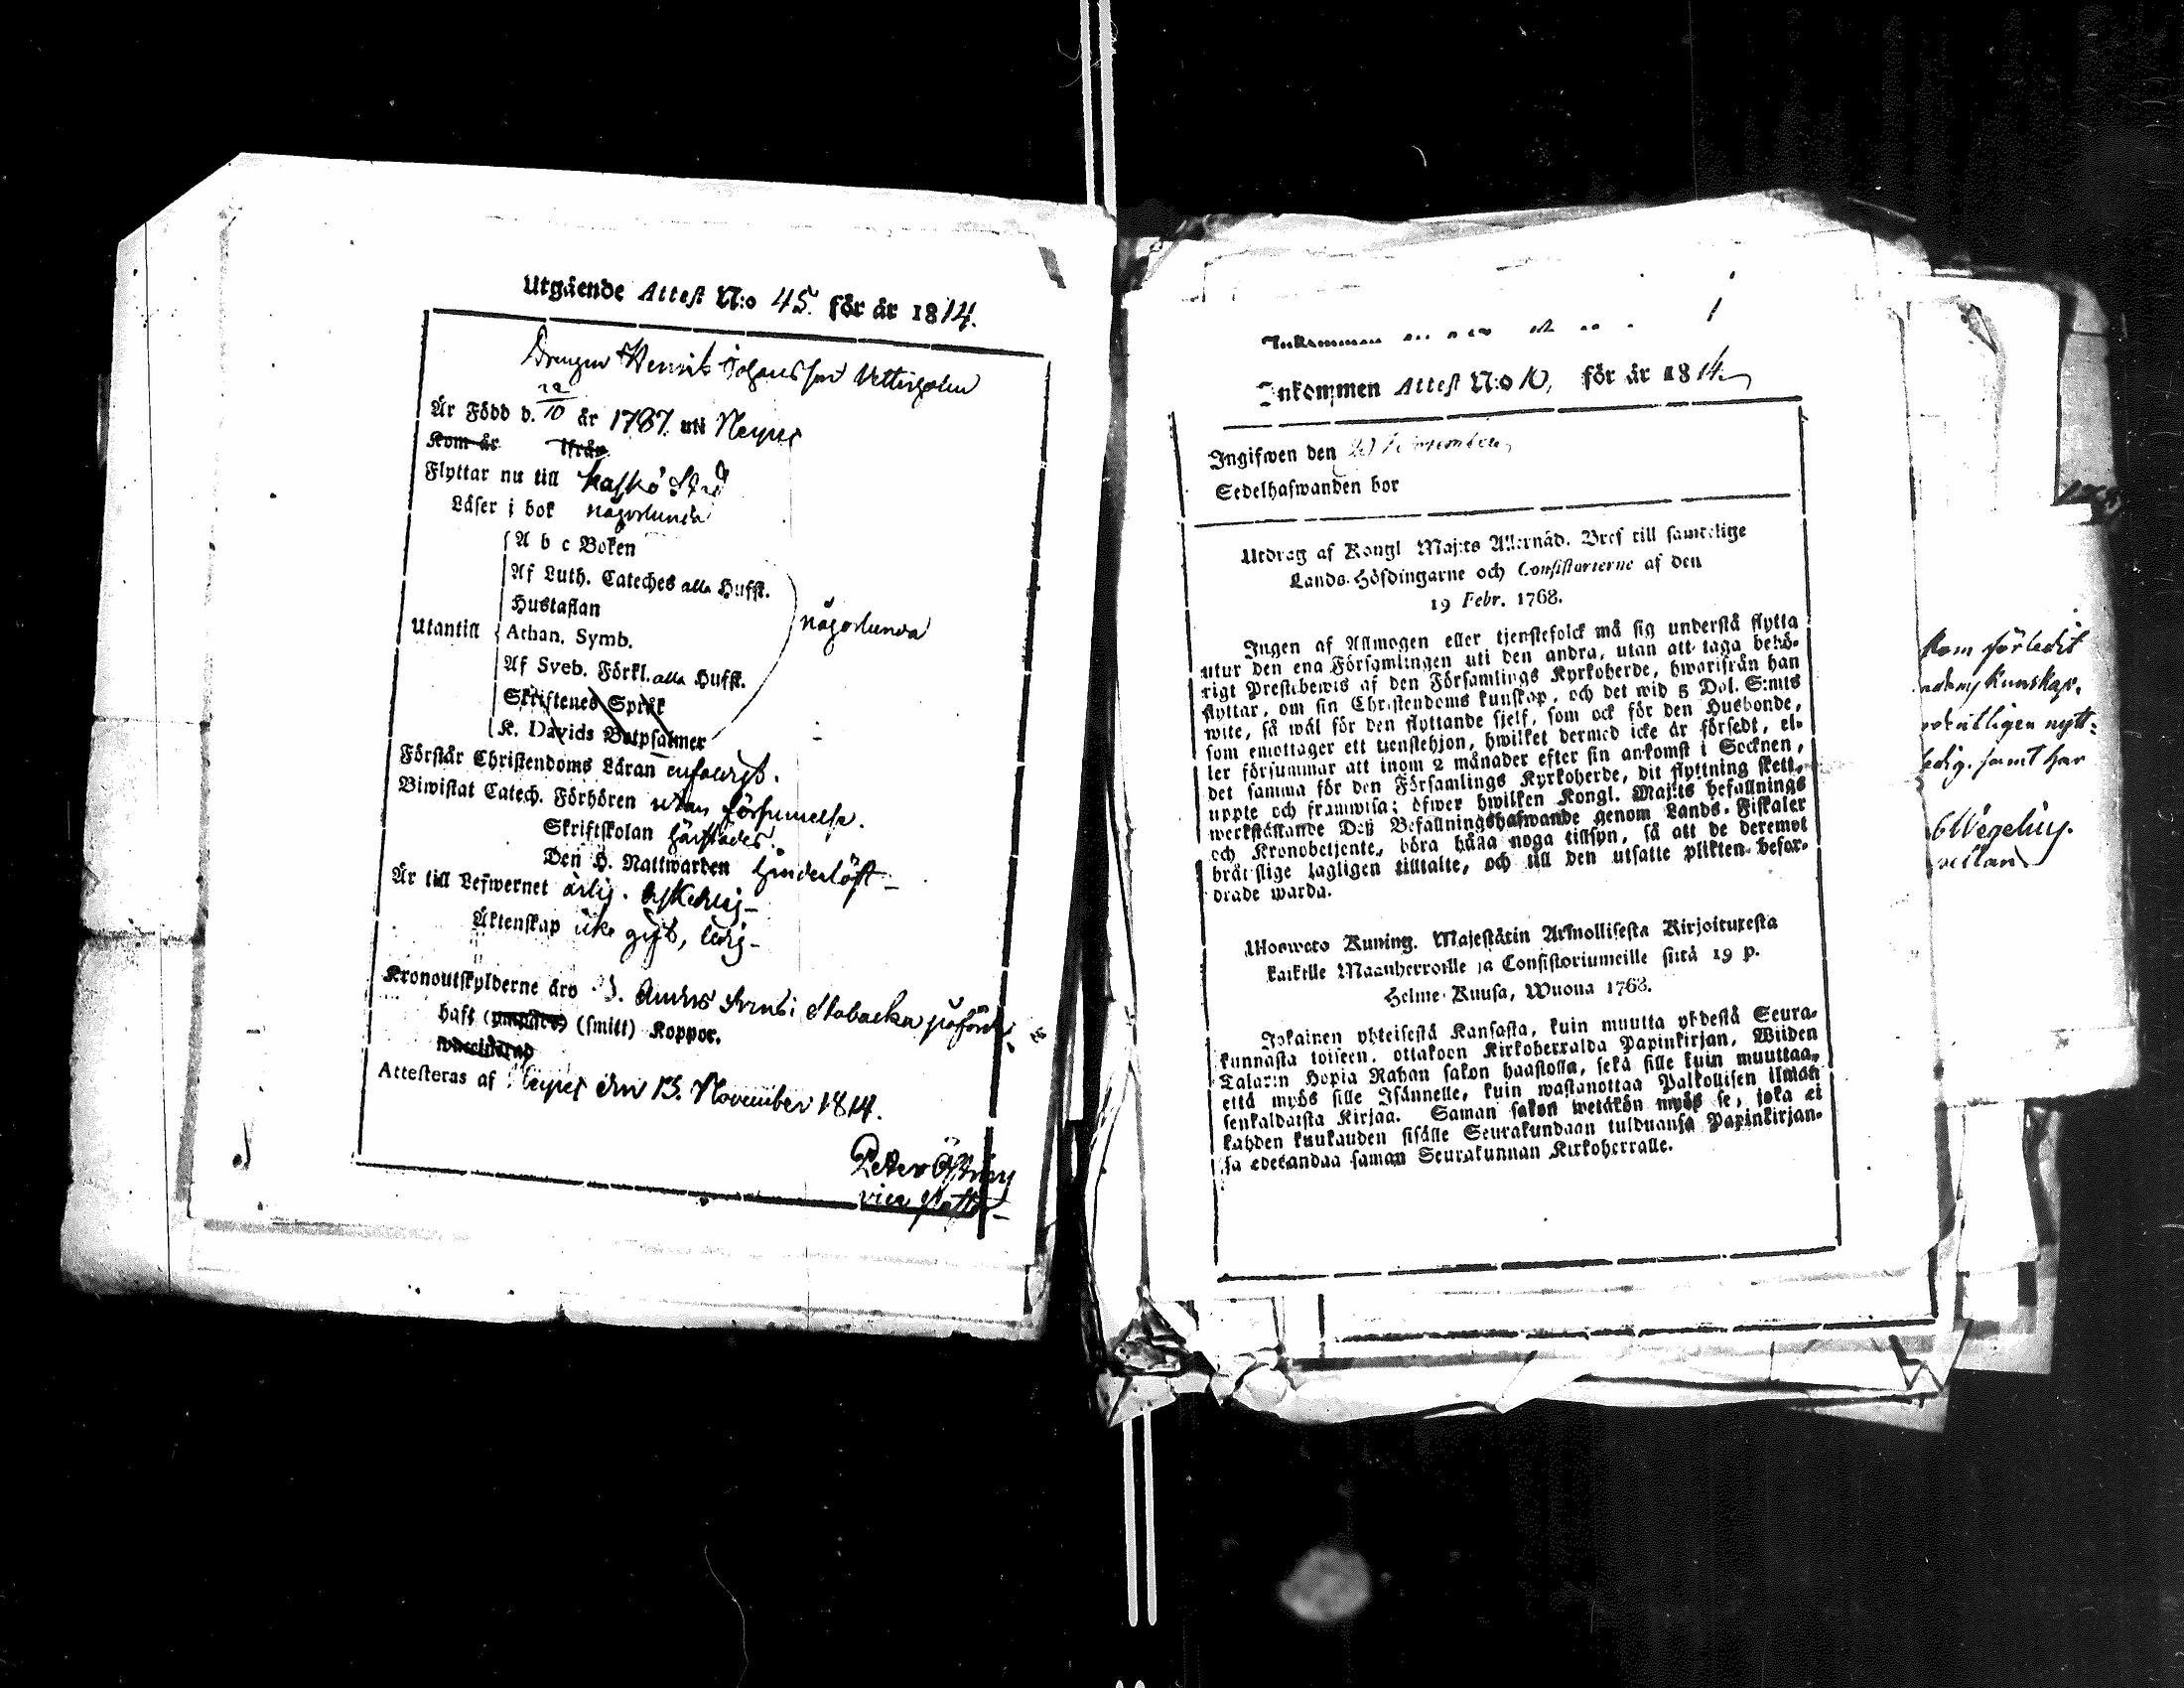 Utgående Attest N:o 45. för år 1814.
Drengen Henrik Johansson
Är Född d. 22/10 år 1787. uti Nerpes
Kom år ifrån
Flyttar nu till Kaskö Stad
Läser i bok någorlunda
A b c Boken
Af Luth. Cateches alla Hufst.
Hustaflan
någorlunda
Utantill
Athan. Symb.
Af Sveb. Förkl. alla Hufst.
Skriftenes Språk
K. Davids Botpsalmer
Förstår Christendoms Läran enfaldigt.
Biwistat Catech. Förhören utan försummelse.
Skriftskolan härstädes.
Den H. Nattwarden hinderlöst
Är till Lefwernet ärlig. beskedlig
Äktenskap icke gift, ledig
Kronoutskylderne äro Anders
haft (smitt) Koppor.
Attesteras af Nerpes den 13. November 1814.
Peter
vice Pastor
Inkommen Attest N:o 10, för år 1814
Ingifwen den November
Sedelhafwanden bor
Utdrag af Kongl Maj:ts Allernåd. Bref till samtelige
Lands-Höfdingarne och Consistorierne af den
19 Febr. 1768.
Ingen af Allmogen eller tjenstefolck må sig understå flytta
utur den ena Församlingen uti den andra, utan att taga behö-
rigt Prestebewis af den Församlings Kyrkoherde, hwarifrån han
flyttar, om sin Christendoms kunskap, och det wid 5 Dal. S:mts
wite, så wäl för den flyttande sjelf, som ock för den Husbonde,
som emottager ett tjenstehjon, hwilket dermed icke är försedt, el-
ler försummar att inom 2 månader efter sin ankomst i Socknen,
det samma för den Församlings Kyrkoherde, dit flyttning skett,
uppte och framwisa; öfwer hwilken Kongl. Maj:ts befallnings
werkställande Deß Befallningshafwande genom Lands-Fiskaler
och Kronobetjente, böra hålla noga tillsyn, så att de deremot
brätslige lagligen tilltalte, och till den utsatte plikten befor-
drade warda.
Uloswets Kuning. Majestätin Armollisesta Kirjoituxesta
kaikille Maanherroille ja Consistoriumeille siitä 19 p.
Helme-Kuusa, Wuona 1768.
Jokainen yhteisestä Kansasta, kuin muutta yhdestä Seura-
kunnasta toiseen, ottakoon Kirkoherralda Papinkirjan, Wiiden
Talarin Hopia Rahan sakon haastolla, sekä sille kuin muuttaa,
että myös sille Isännelle, kuin wastanottaa Palkollisen ilman
senkaldaista Kirjaa. Saman sakon wetäkön myös se, joka ei
kahden kuukauden sisälle Seurakundaan tulduansa Papinkirjan-
sa edesandaa saman Seurakunnan Kirkoherralle.
kom förledit
kunskap.
nytt-
ledig. samt har
Wegelius.